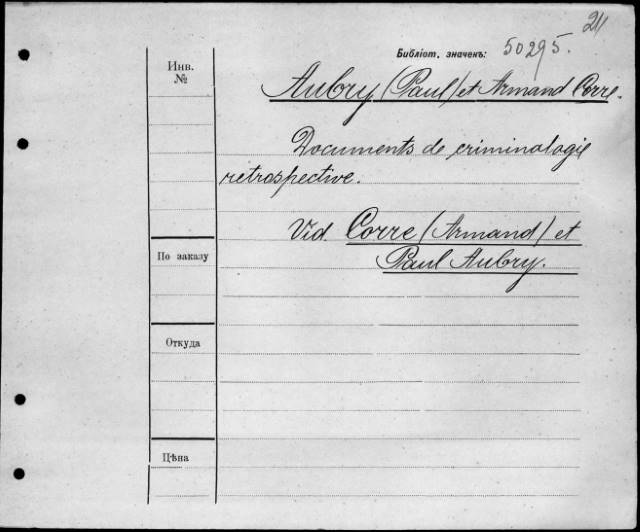 211
Библіот. значекъ: 50295.
Инв.
№
Aubry (Paul) et Armand Corre.
Documents de criminologie
retrospective.
Vid. Corre (Armand) et
Paul Aubry.
По заказу
Откуда
Цѣна